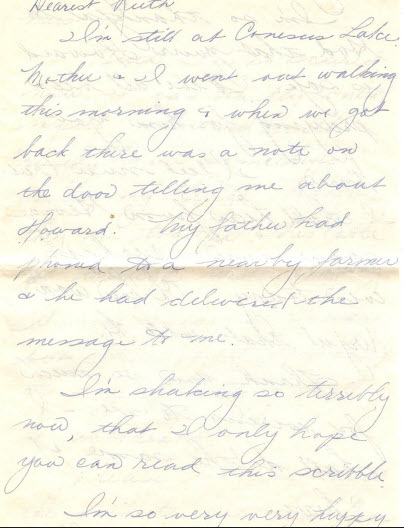 Dearest Ruth
I'm still at Conesus Lake.
Mother & I went out walking
this morning & when we got
back there was a note on
the door telling me about
Howard. My father had
phoned to a nearby farmer
& he had delivered the
message to me.
I'm shaking so terribly
now, that I only hope
you can read this scribble.
I'm so very very happy